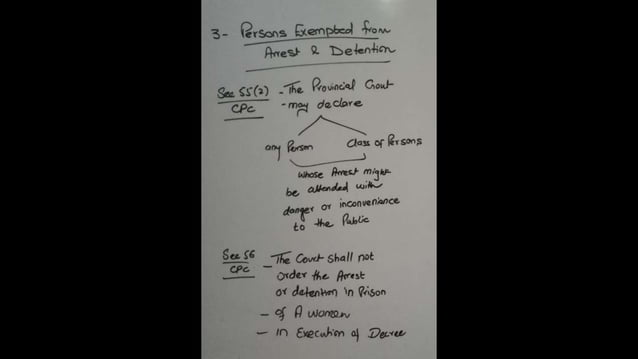 3- Persons Exempted from
Arrest & Detention
Sec 55(2) - The Provincial Govt
CPC - may declare
any Person Class of Persons
whose Arrest might
be attended with
danger or inconvenience
to the Public
Sec 56 - The Court shall not
CPC order the Arrest
or detention in Prison
- of A women
- in Execution of Decree